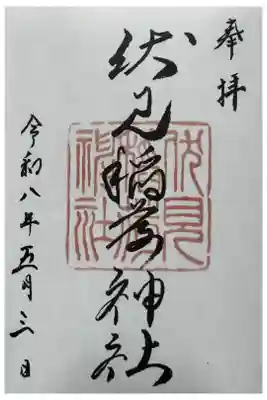 奉拝
伏見稲荷神社
伏見稲荷神社
令和八年五月三日